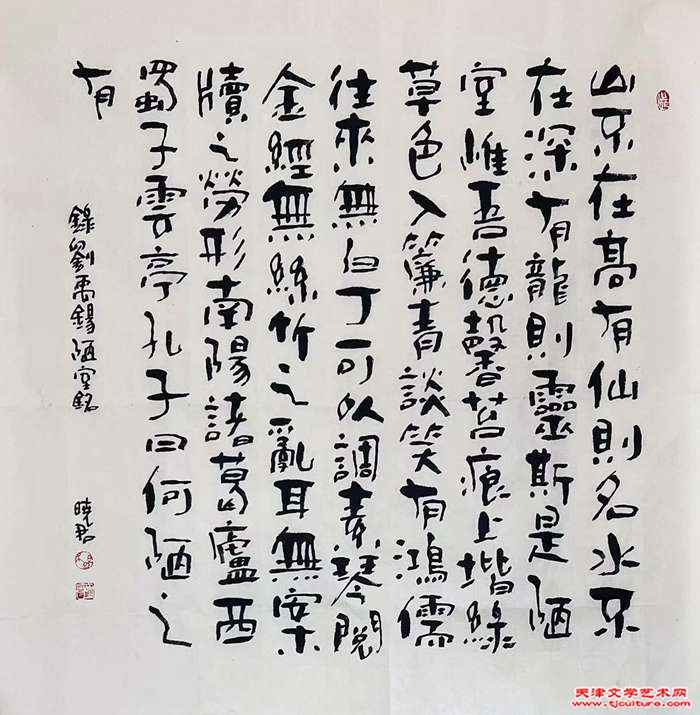 山不在高有仙則名水不
在深有龍則靈斯是陋
室惟吾德馨苔痕上堦綠
草色入簾青談笑有鴻儒
往來無白丁可以調素琴閱
金經無絲竹之亂耳無案
牘之勞形南陽諸葛廬西
蜀子雲亭孔子曰何陋之
有
錄劉禹錫陋室銘
曉君
天津文学艺术网
www.tjculture.com